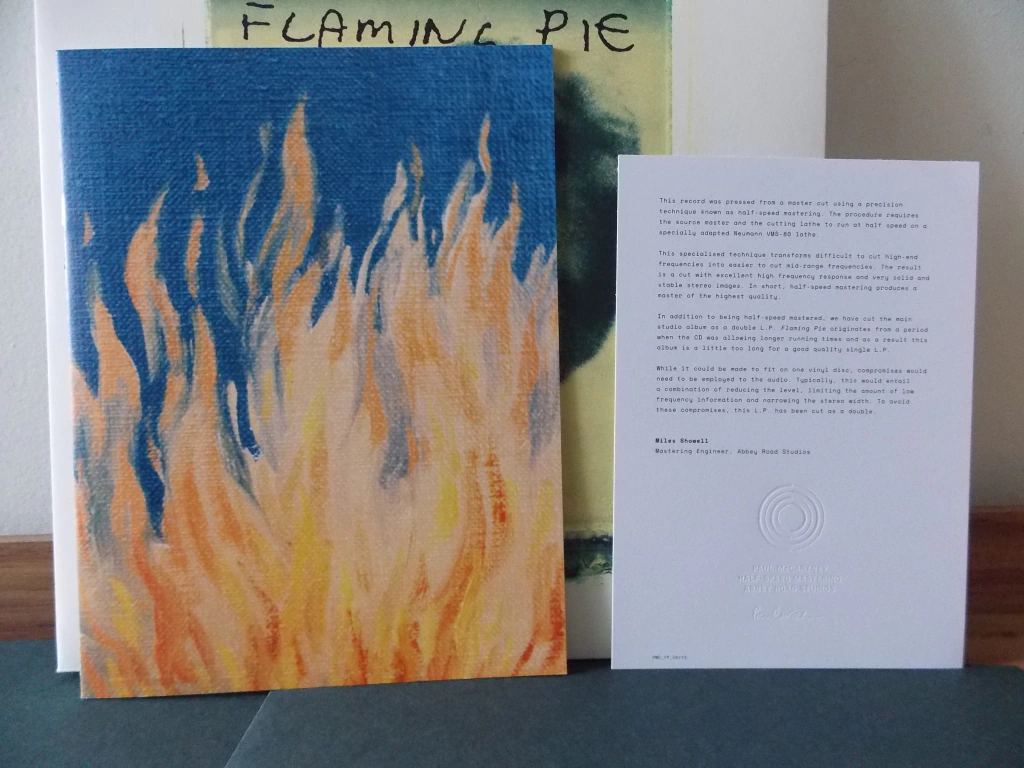 FLAMING PIE
This record was pressed from a master cut using a precision
technique known as half-speed mastering. The procedure requires
the source master and the cutting lathe to run at half speed on a
specially adapted Neumann VMS-80 lathe.
This specialised technique transforms difficult to cut high-end
frequencies into easier to cut mid-range frequencies. The result
is a cut with excellent high frequency response and very solid and
stable stereo images. In short, half-speed mastering produces a
master of the highest quality.
In addition to being half-speed mastered, we have cut the main
studio album as a double L.P. Flaming Pie originates from a period
when the CD was allowing longer running times and as a result this
album is a little too long for a good quality single L.P.
While it could be made to fit on one vinyl disc, compromises would
need to be employed to the audio. Typically, this would entail
a combination of reducing the level, limiting the amount of low
frequency information and narrowing the stereo width. To avoid
these compromises, this L.P. has been cut as a double.
Miles Showell
Mastering Engineer, Abbey Road Studios
PAUL McCARTNEY
HALF-SPEED MASTERING
ABBEY ROAD STUDIOS